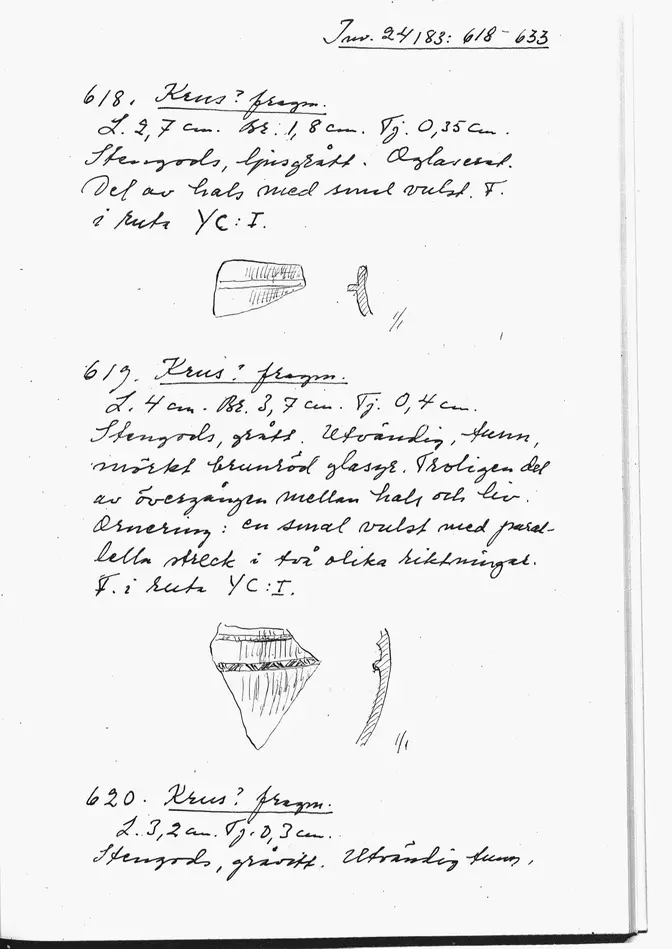 Inv. 24183: 618-633
618. Krus? fragm.
L. 2,7 cm. Br. 1,8 cm. Tj. 0,35 cm.
Stengods, ljusgrått. Oglaserat.
Del av hals med smal vulst. F.
i ruta YC:I.
1/1
619. Krus? fragm.
L. 4 cm. Br. 3,7 cm. Tj. 0,4 cm.
Stengods, grått. Utvändig, tunn,
mörkt brunröd glasyr. Troligen del
av övergången mellan hals och liv.
Ornering: en smal vulst med paral-
lella streck i två olika riktningar.
F. i ruta YC:I.
1/1
620. Krus? fragm.
L. 3,2 cm. Tj. 0,3 cm.
Stengods, gråvitt. Utvändig tunn,